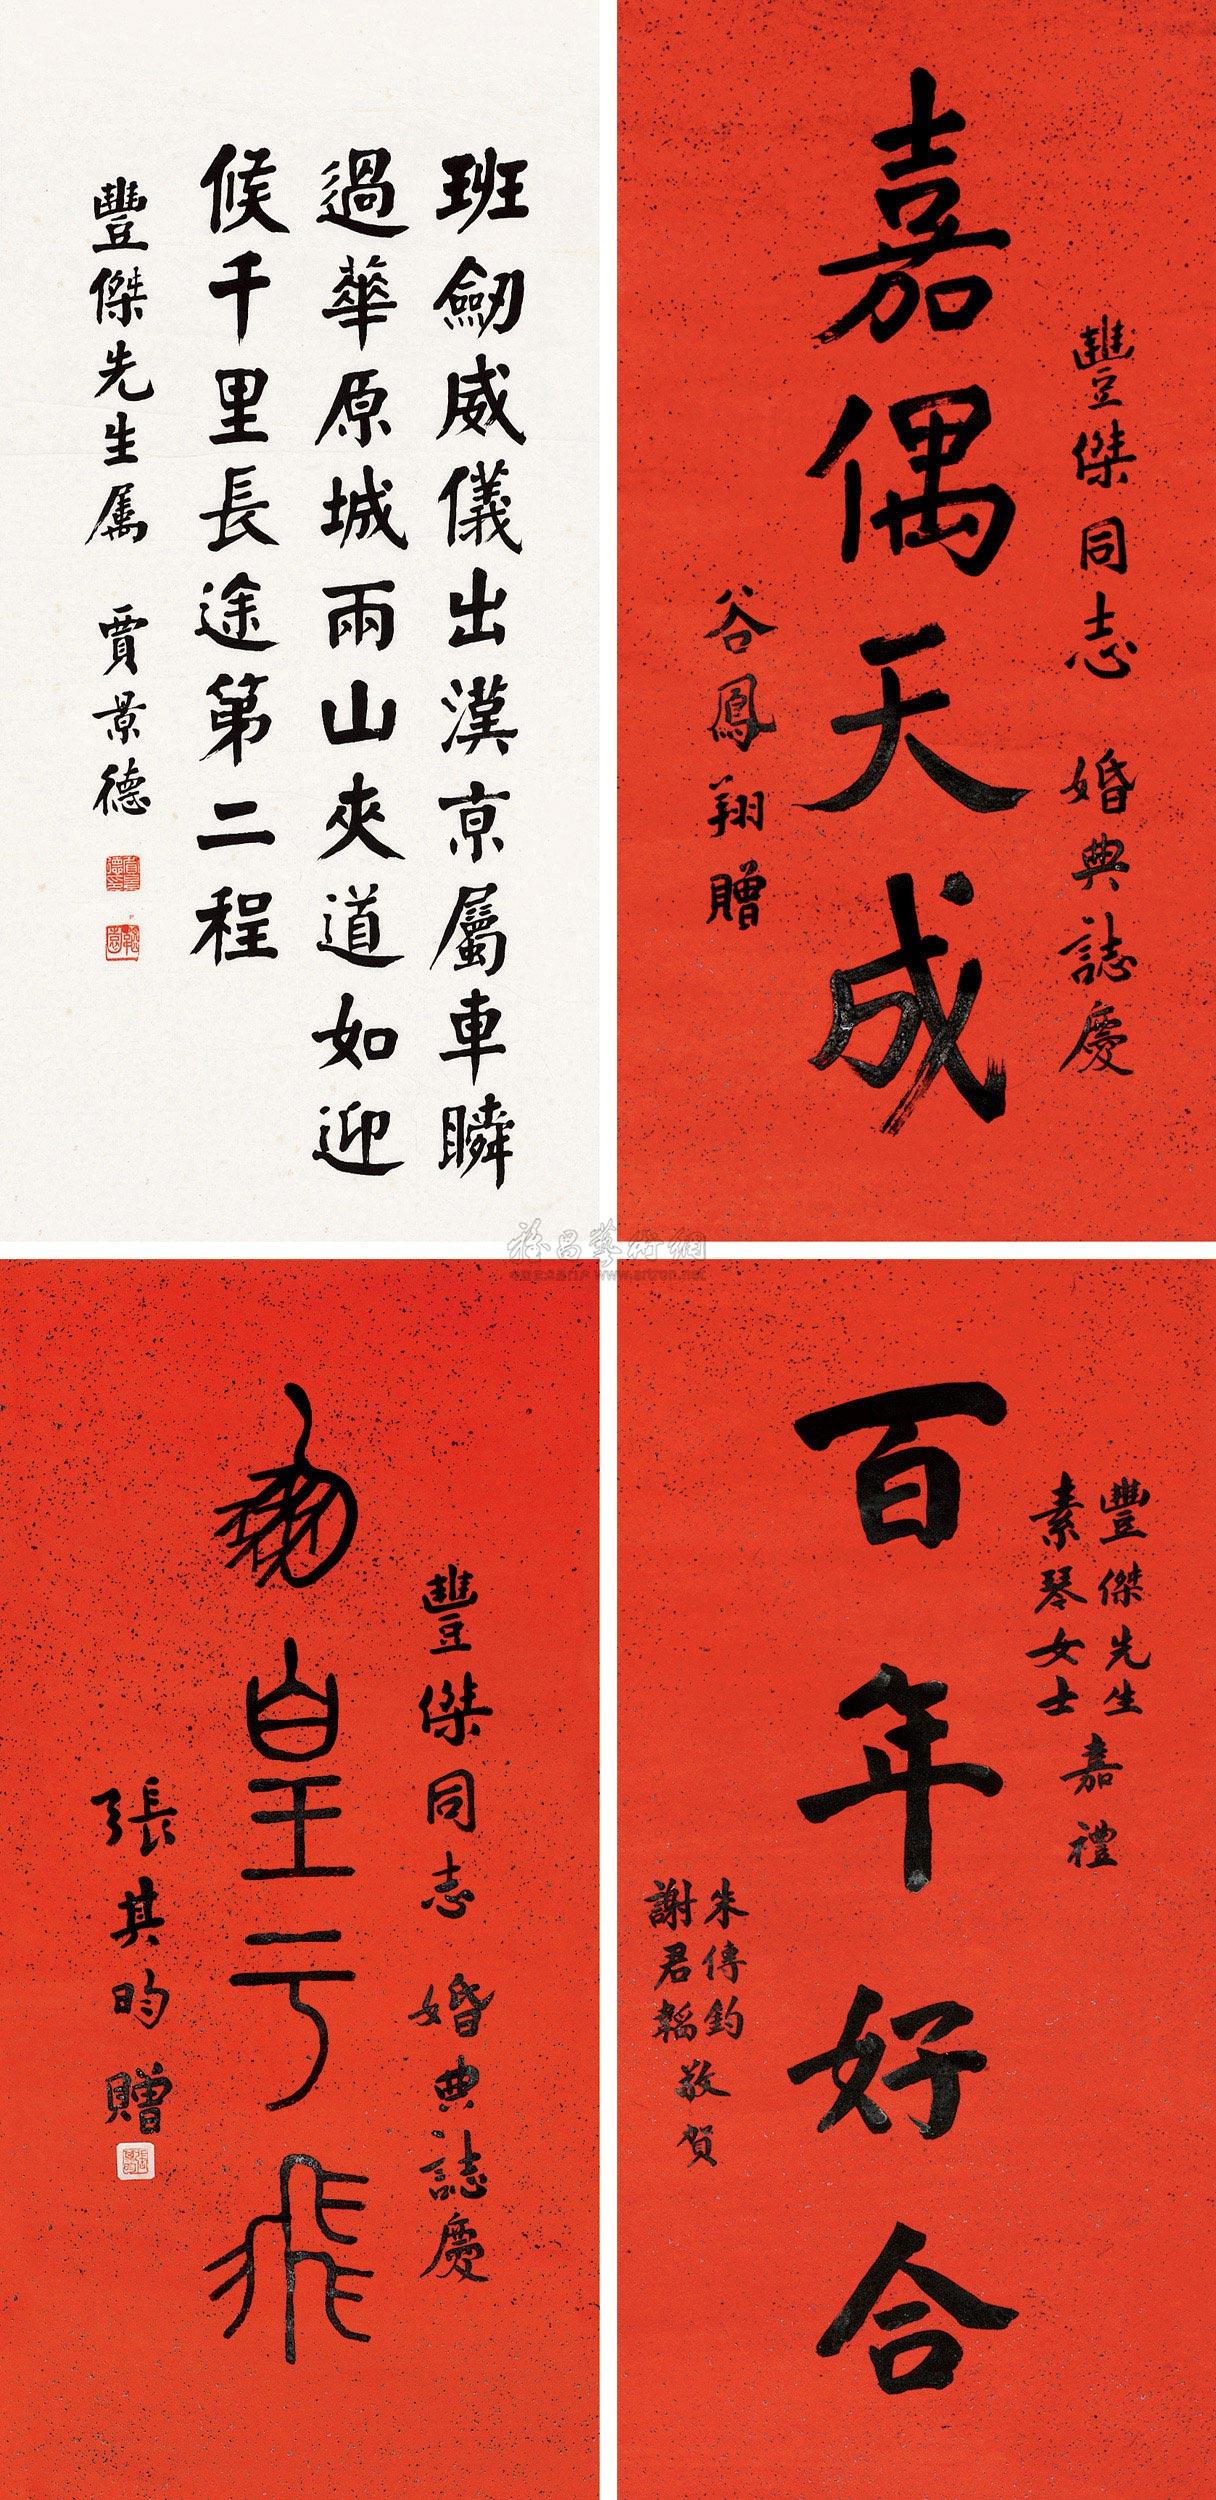 嘉偶天成
豐傑同志 婚典誌慶
谷鳳翔贈
班劒威儀出漢京屬車瞬
過華原城兩山夾道如迎
候千里長途第二程
豐傑先生属 賈景德
百年好合
豐傑先生
素琴女士
嘉禮
朱傳鈞
謝君韜
敬賀
豐傑同志 婚典誌慶
鳳皇于飛
張其昀贈